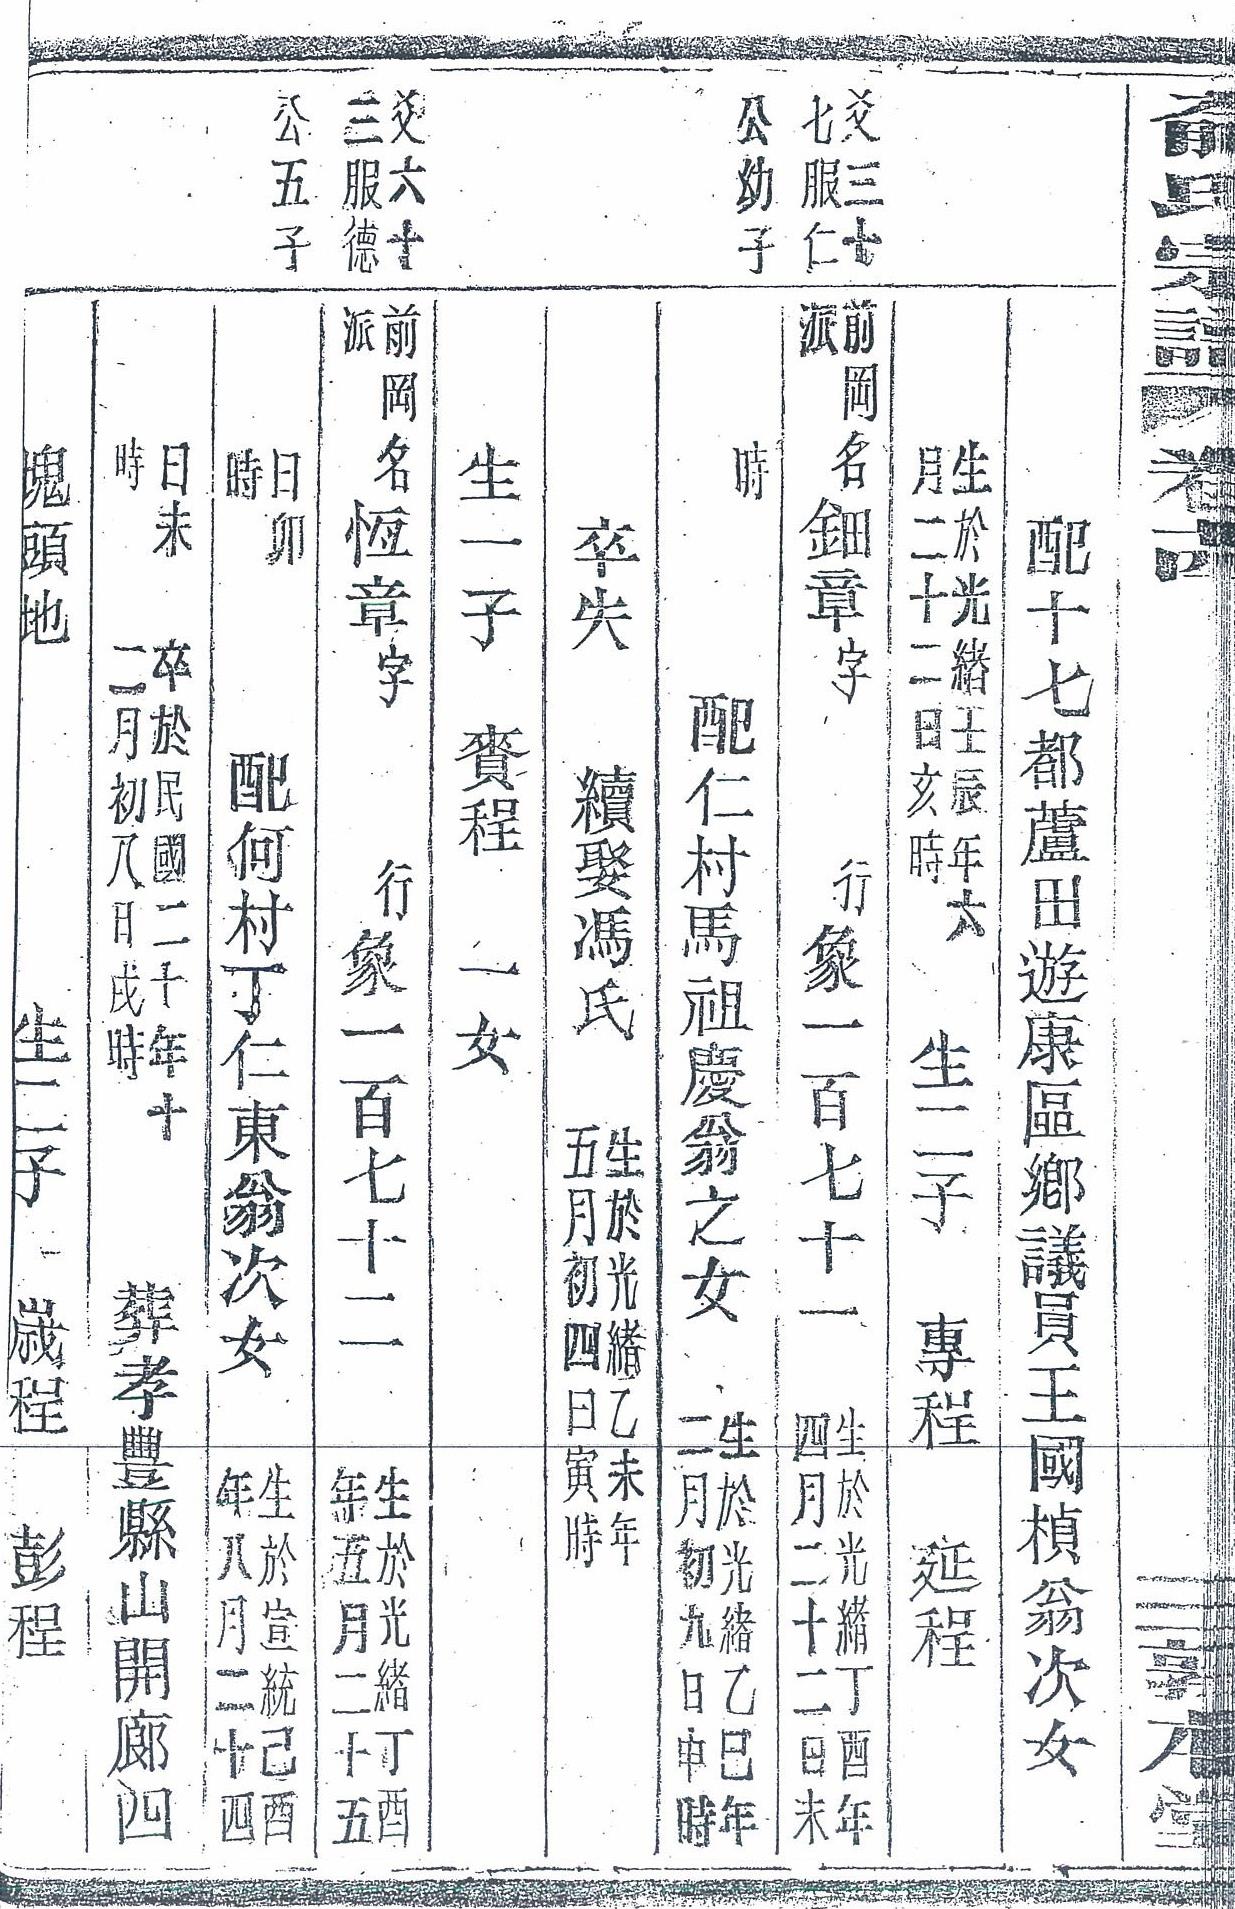 俞氏宗譜 卷
配十七都蘆田遊康區鄉議員王國楨翁次女
生於光緒壬辰年六
月二十二日亥時
生二子 專程 延程
爻三十
七服仁
公幼子
前岡名
派
鈿章字 行象一百七十一
生於光緒丁酉年
四月二十二日未
時
配仁村馬祖慶翁之女
生於光緒乙巳年
二月初九日申時
卒失 續娶馮氏
生於光緒乙未年
五月初四日寅時
生一子 賚程 一女
爻六十
三服德
公五子
前岡名
派
恆章字 行象一百七十二
生於光緒丁酉
年五月二十五
日卯
時
配何村丁仁東翁次女
生於宣統己酉
年八月二十四
日未
時
卒於民國二十年十
二月初八日戌時
葬孝豐縣山開廊四
塊頭地 生二子 嵗程 彭程